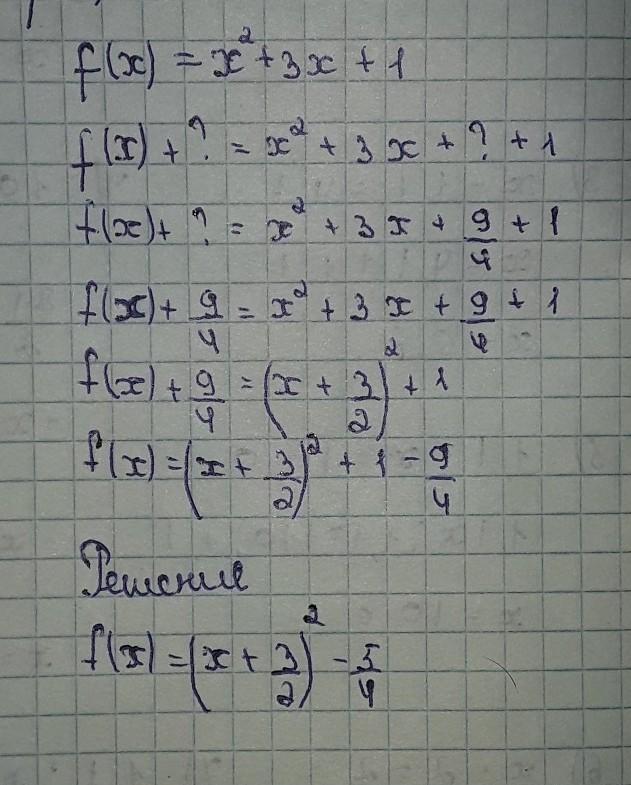 f(x) = x² + 3x + 1
f(x) + ? = x² + 3x + ? + 1
f(x) + ? = x² + 3x + 9/4 + 1
f(x) + 9/4 = x² + 3x + 9/4 + 1
f(x) + 9/4 = (x + 3/2)² + 1
f(x) = (x + 3/2)² + 1 - 9/4
Решение
f(x) = (x + 3/2)² - 5/4